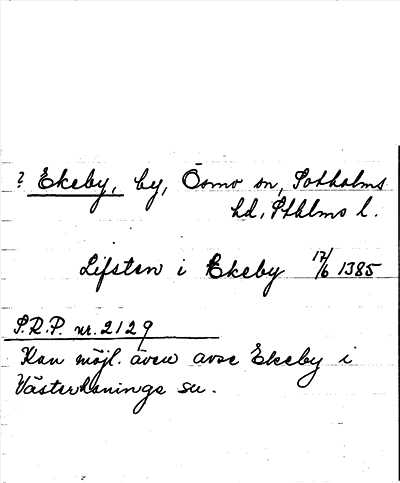 ? Ekeby, by, Ösmo sn, Sotholms
hd, Sthlms l.
Lifsten i Ekeby 17/6 1385
S.R.P. nr. 2129
Kan möjl. även avse Ekeby i
Västerhaninge sn.